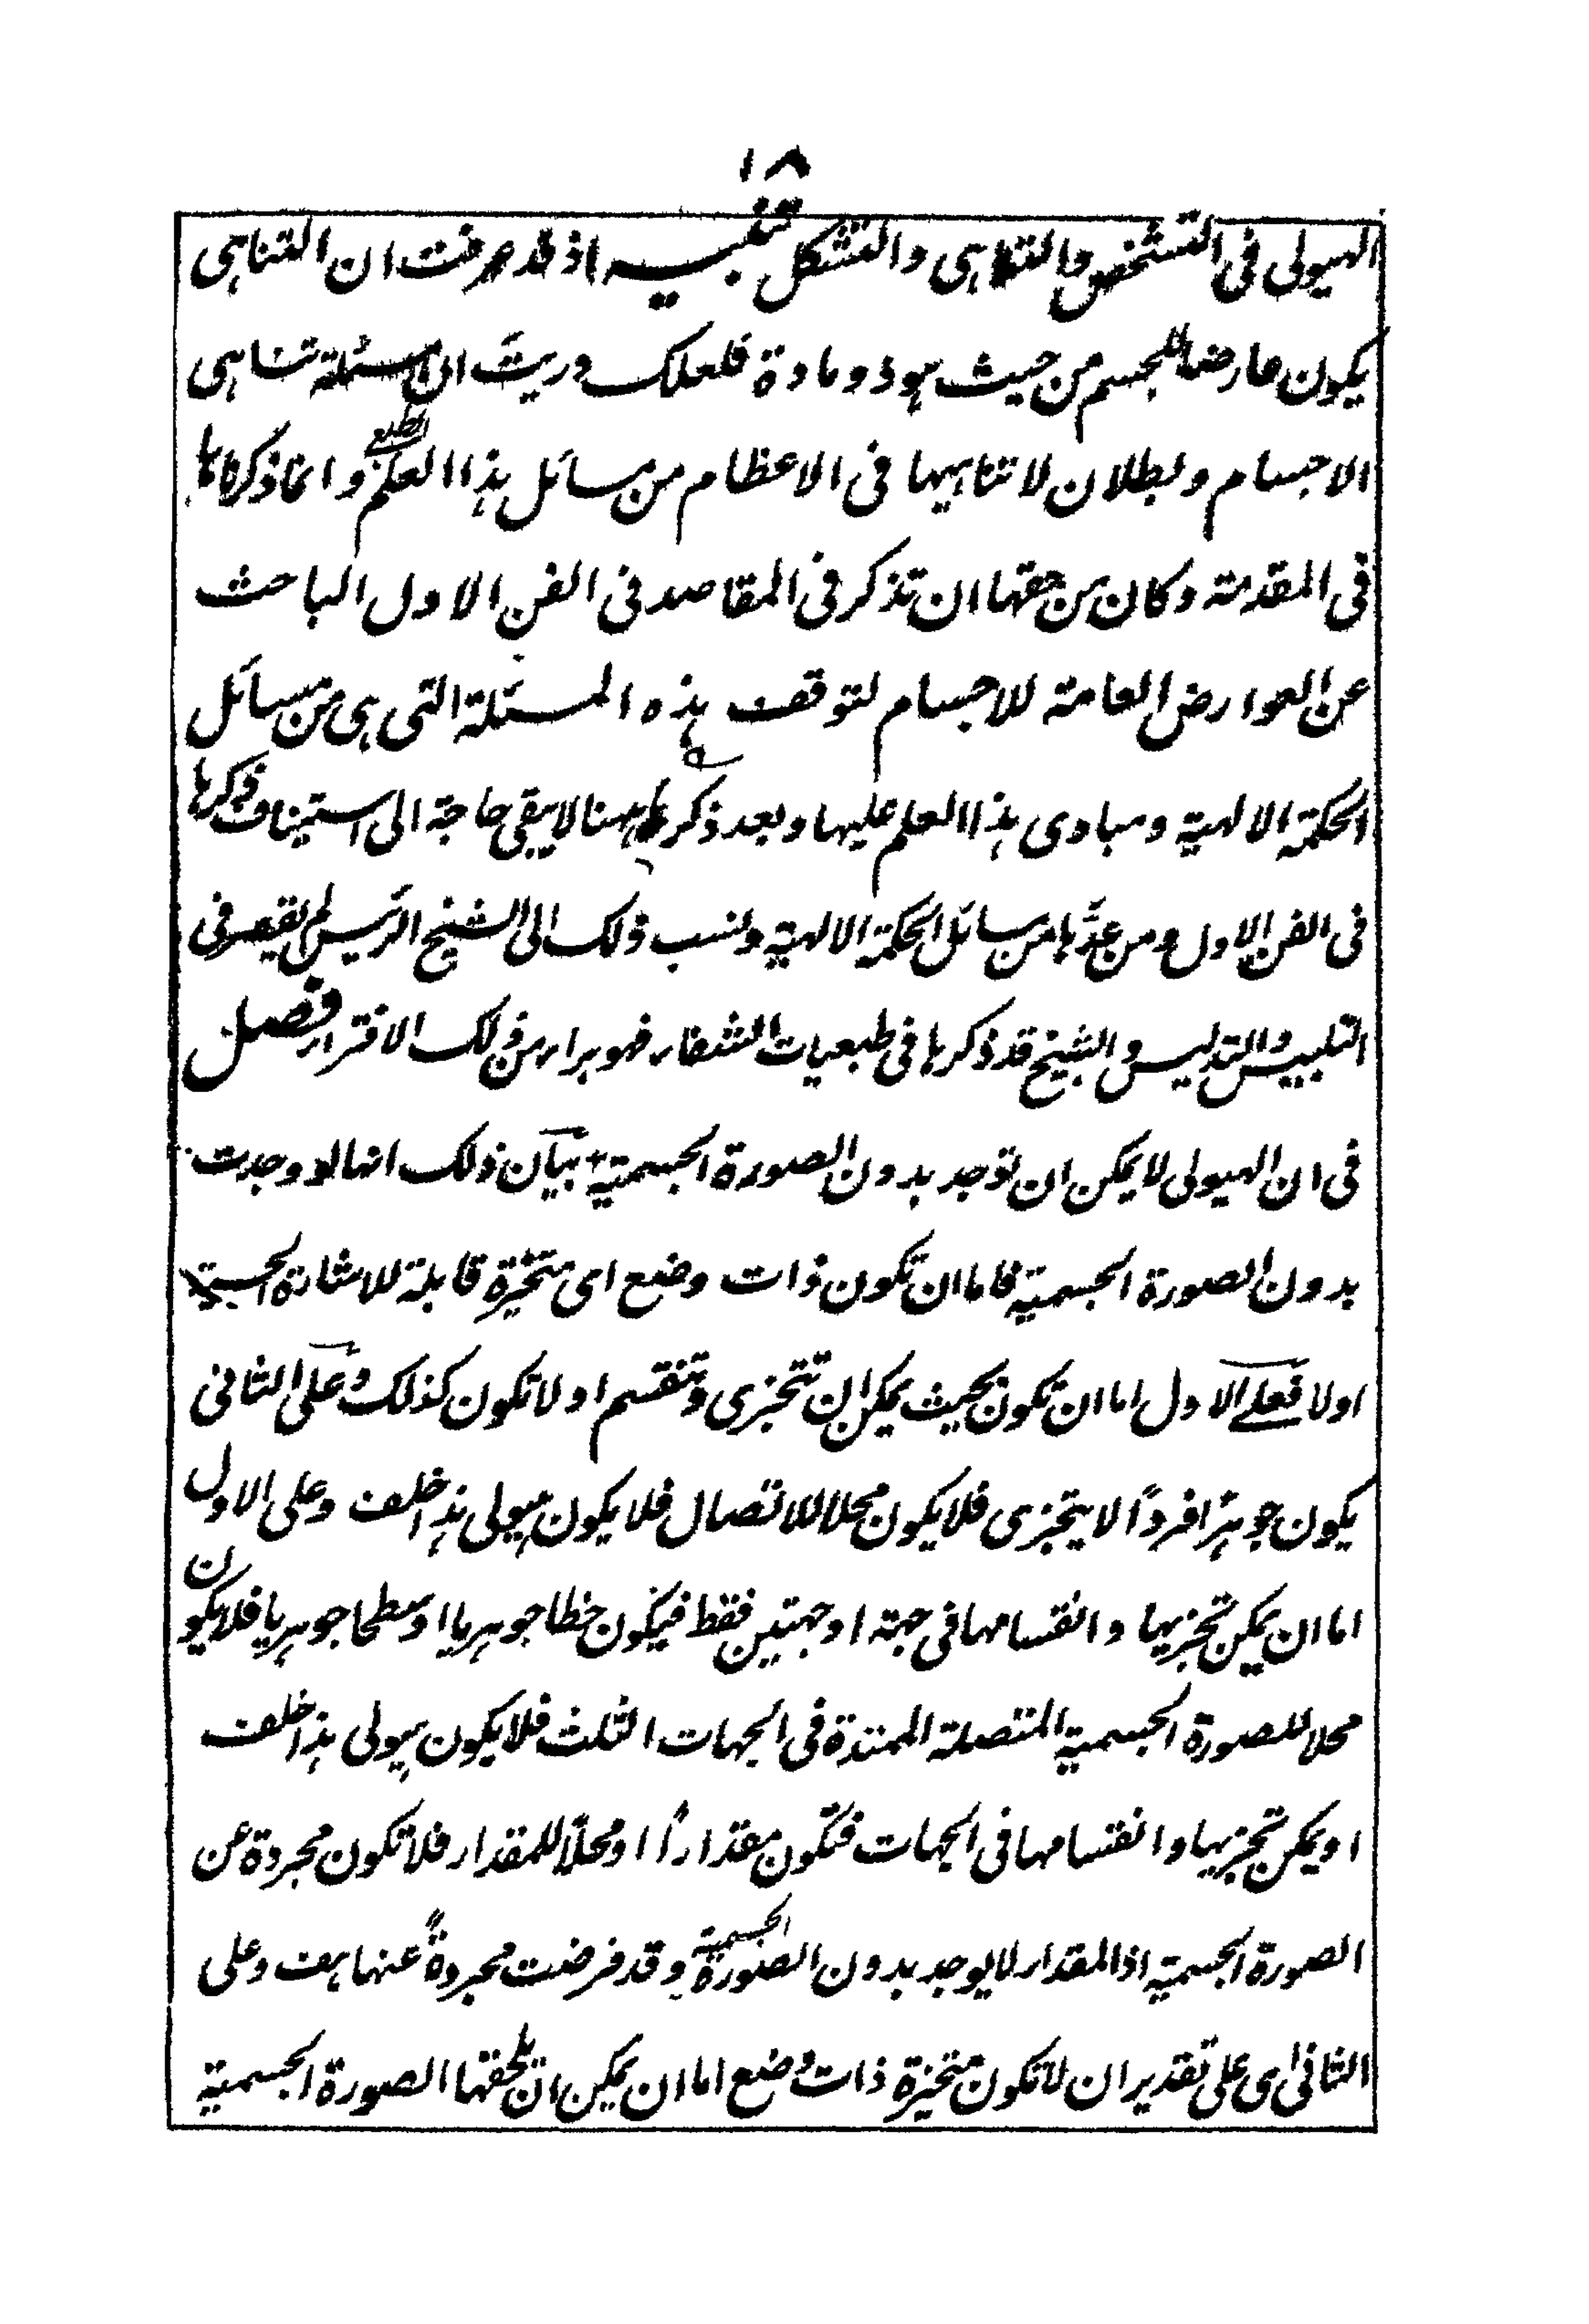 ١٨
الهيولى فى التشخص والتناهى والتشكل تنبيه اذ قد عرفت ان التناهى
يكون عارضا للجسم من حيث هو ذو مادة فلعلك دريت ان مسئلة تناهى
الاجسام وبطلان لا تناهيها فى الاعظام من مسائل هذا العلم الطبعى وانما ذكرناها
فى المقدمة وكان من حقها ان تذكر فى المقاصد فى الفن الاول الباحث
عن العوارض العامة للاجسام لتوقف هذه المسئلة التى هى من مسائل
الحكمة الالهية ومبادى هذا العلم عليها وبعد ذكرها ههنا لا يبقى حاجة الى استيناف ذكرها
فى الفن الاول ومن عدَّها من مسائل الحكمة الالهية ونسب ذلك الى الشيخ الرئيس لم يقصر فى
التلبيس والتدليس والشيخ قد ذكرها فى طبعيات الشفاء فهو براء من ذلك الافتراء فصل
فى ان الهيولى لا يمكن ان توجد بدون الصورة الجسمية بيان ذلك انها لو وجدت
بدون الصورة الجسمية فاما ان تكون ذات وضع اى متحيزة قابلة للاشارة الحسية
اولا فعلى الاول اما ان تكون بحيث يمكن ان تتجزى وتنقسم او لا تكون كذلك وعلى الثانى
يكون جوهرًا فردًا لا يتجزى فلا يكون محلا للاتصال فلا يكون هيولى هذا خلف وعلى الاول
اما ان يمكن تجزيها وانقسامها فى جهة او جهتين فقط فيكون خطا جوهريا او سطحا جوهريا فلا يكون
محلا للصورة الجسمية المتصلة الممتدة فى الجهات الثلث فلا يكون هيولى هذا خلف
او يمكن تجزيها وانقسامها فى الجهات فتكون مقدارًا او محلًا للمقدار فلا تكون مجردة عن
الصورة الجسمية اذ المقدار لا يوجد بدون الصورة الجسمية وقد فرضت مجردةً عنها هف وعلى
الثانى اى على تقدير ان لا تكون متحيزة ذات وضع اما ان يمكن ان تلحقها الصورة الجسمية